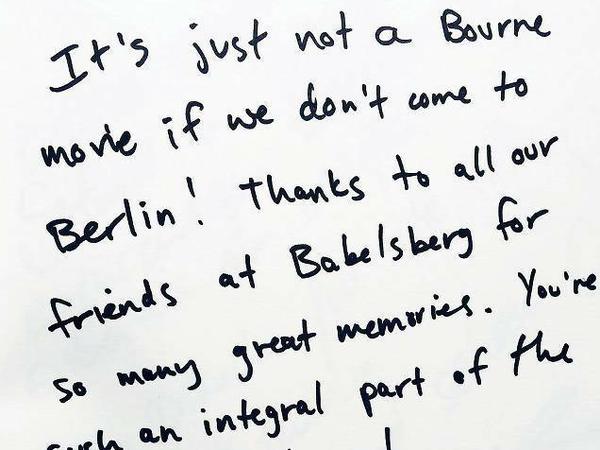 It's just not a Bourne
movie if we don't come to
Berlin! Thanks to all our
friends at Babelsberg for
so many great memories. You're
such an integral part of the